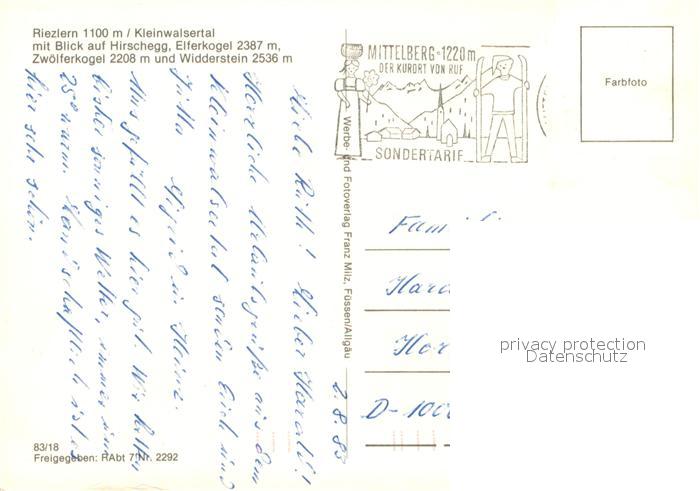 Riezlern 1100 m / Kleinwalsertal
mit Blick auf Hirschegg, Elferkogel 2387 m,
Zwölferkogel 2208 m und Widderstein 2536 m
MITTELBERG · 1220 m
DER KURORT VON RUF
SONDERTARIF
Farbfoto
2.8.83
Liebe Ruth! Lieber Harald!
Herzliche Urlaubsgrüße aus dem
Kleinwalsertal senden Euch
Jutta
in Heinz.
Uns gefällt es hier gut. Wir hatten
bisher sonniges Wetter, immer um
25° warm. Landschaftlich ist es
hier sehr schön.
Werbe- und Fotoverlag Franz Milz, Füssen/Allgäu
Fam
Hara
D-100
privacy protection
Datenschutz
83/18
Freigegeben: RAbt 7 Nr. 2292